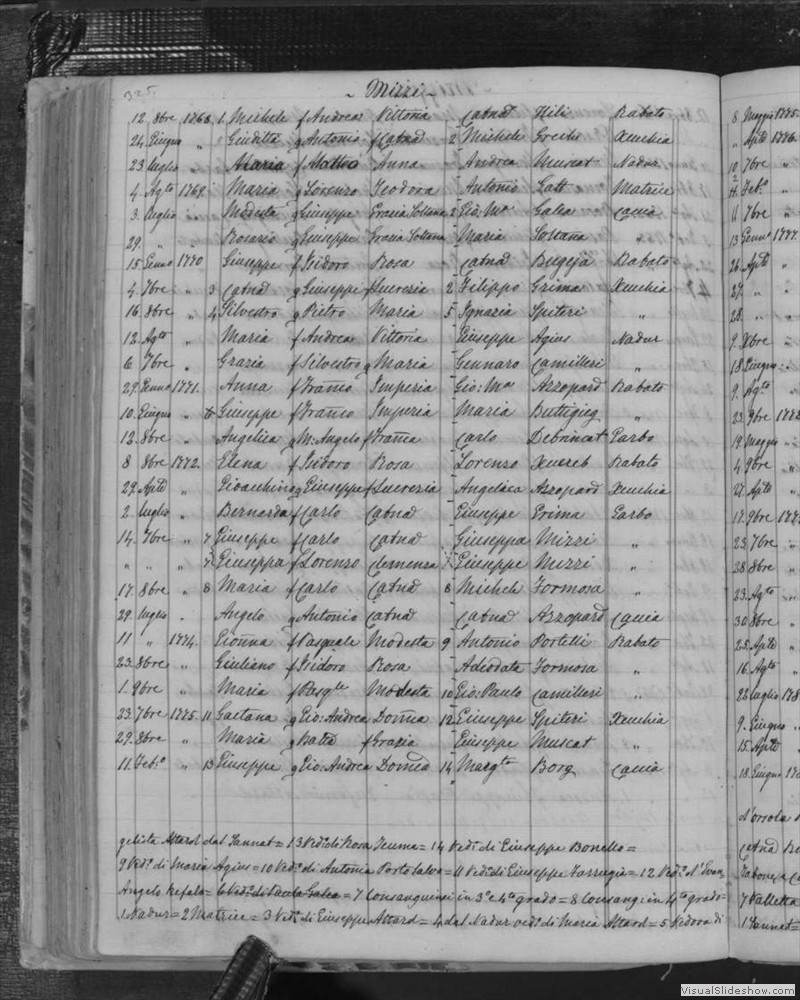 325.
- Mizzi -
12. 8bre 1768 1 Michele f Andrea Vittoria - Catnā Hili Rabato
24. Giugno " Giuditta g Antonio f Catnā 2 Michele Grechi Xeuchia
23 luglio " Maria f Matteo Anna - Andrea Muscat Nadur
4. Agto 1769. Maria g Lorenzo Teodora - Antonio Gatt Matrice
3. luglio " Modesta g Giuseppe Grazia Soltana 2 Gio: Ma Galea Caccia
29. " " Rosario g Giuseppe Grazia Soltana - Maria Soltana "
15. Genno 1770 Giuseppe f Isidoro Rosa - Catnā Bugeja Rabato
4. 7bre " 3 Catnā g Giuseppe f Lucrezia 2 Filippo Grima Xeuchia
16. 8bre " 4 Silvestro g Pietro Maria 5 Ignazia Spiteri "
12. Agto " Maria f Andrea Vittoria - Giuseppe Agius Nadur
6 7bre " Grazia f Silvestro g Maria - Gennaro Camilleri "
29. Genno 1771. Anna f Franco Imperia - Gio: Ma Azzopard Rabato
10. Giugno " 6 Giuseppe f Franco Imperia - Maria Buttigieg "
12. 8bre " Angelica g M: Angelo f Franca - Carlo Debrincat Garbo
8 8bre 1772. Elena f Isidoro Rosa - Lorenzo Xuereb Rabato
29. Aple " Gioacchino g Giuseppe f Lucrezia - Angelica Azzopard Xeuchia
2. luglio " Bernarda f Carlo Catnā - Giuseppe Grima Garbo
14. 7bre " 7 Giuseppe f Carlo Catnā Giuseppa Mizzi "
" " " 7 Giuseppa f Lorenzo Clemenza 7 Giuseppe Mizzi "
17. 8bre " 8 Maria f Carlo Catnā 8 Michele Formosa "
29. luglio . Angelo g Antonio Catnā - Catnā Azzopard Caccia
11 " 1774. Gionna f Pasquale Modesta 9 Antonio Portelli Rabato
23. 8bre " Giuliano f Isidoro Rosa - Adiodata Formosa "
1. 9bre " Maria f Pasqle Modesta 10 Gio: Paulo Camilleri "
23. 7bre 1775. 11 Gaetana g Gio: Andrea Domca 12 Giuseppe Spiteri Xeuchia
29. 8bre " Maria g Batta f Grazia Giuseppe Muscat "
11. Febo " 13 Giuseppe g Gio: Andrea Domca 14 Margta Borg Caccia
gelista Attard dal Sannat = 13 Veda di Rosa Teuma = 14 Vedo di Giuseppe Bonello =
9 Vedo di Maria Agius = 10 Vedo di Antonia Portosalvo = 11 Veda di Giuseppe Farrugia = 12 Vedo d' Evan
Angelo Refalo = 6 Vedo di Paula Galea = 7 Consanguinei in 3o e 4to grado = 8 Consang: in 4to grado =
1 Nadur = 2 Matrice = 3 Veda di Giuseppe Attard = 4 dal Nadur vedo di Maria Attard = 5 Vedova di
8 Maggio 1775.
" Aple 1776.
10 7bre "
11 7bre "
13 Genno 1777.
26. Aple "
27. " "
28. " "
9. Xbre "
18 Giugno "
9. Agto "
23. 9bre
19. Maggio
4. 9bre "
17. 9bre
23. 7bre "
28 8bre "
23. Agto "
30 8bre "
25. Aple "
16. Agto "
22 luglio
9. Giugno
15. Aple
18. Giugno
d'Orsola
Catnā
7 Valletta
1 Sannat =
VisualSlideshow.com